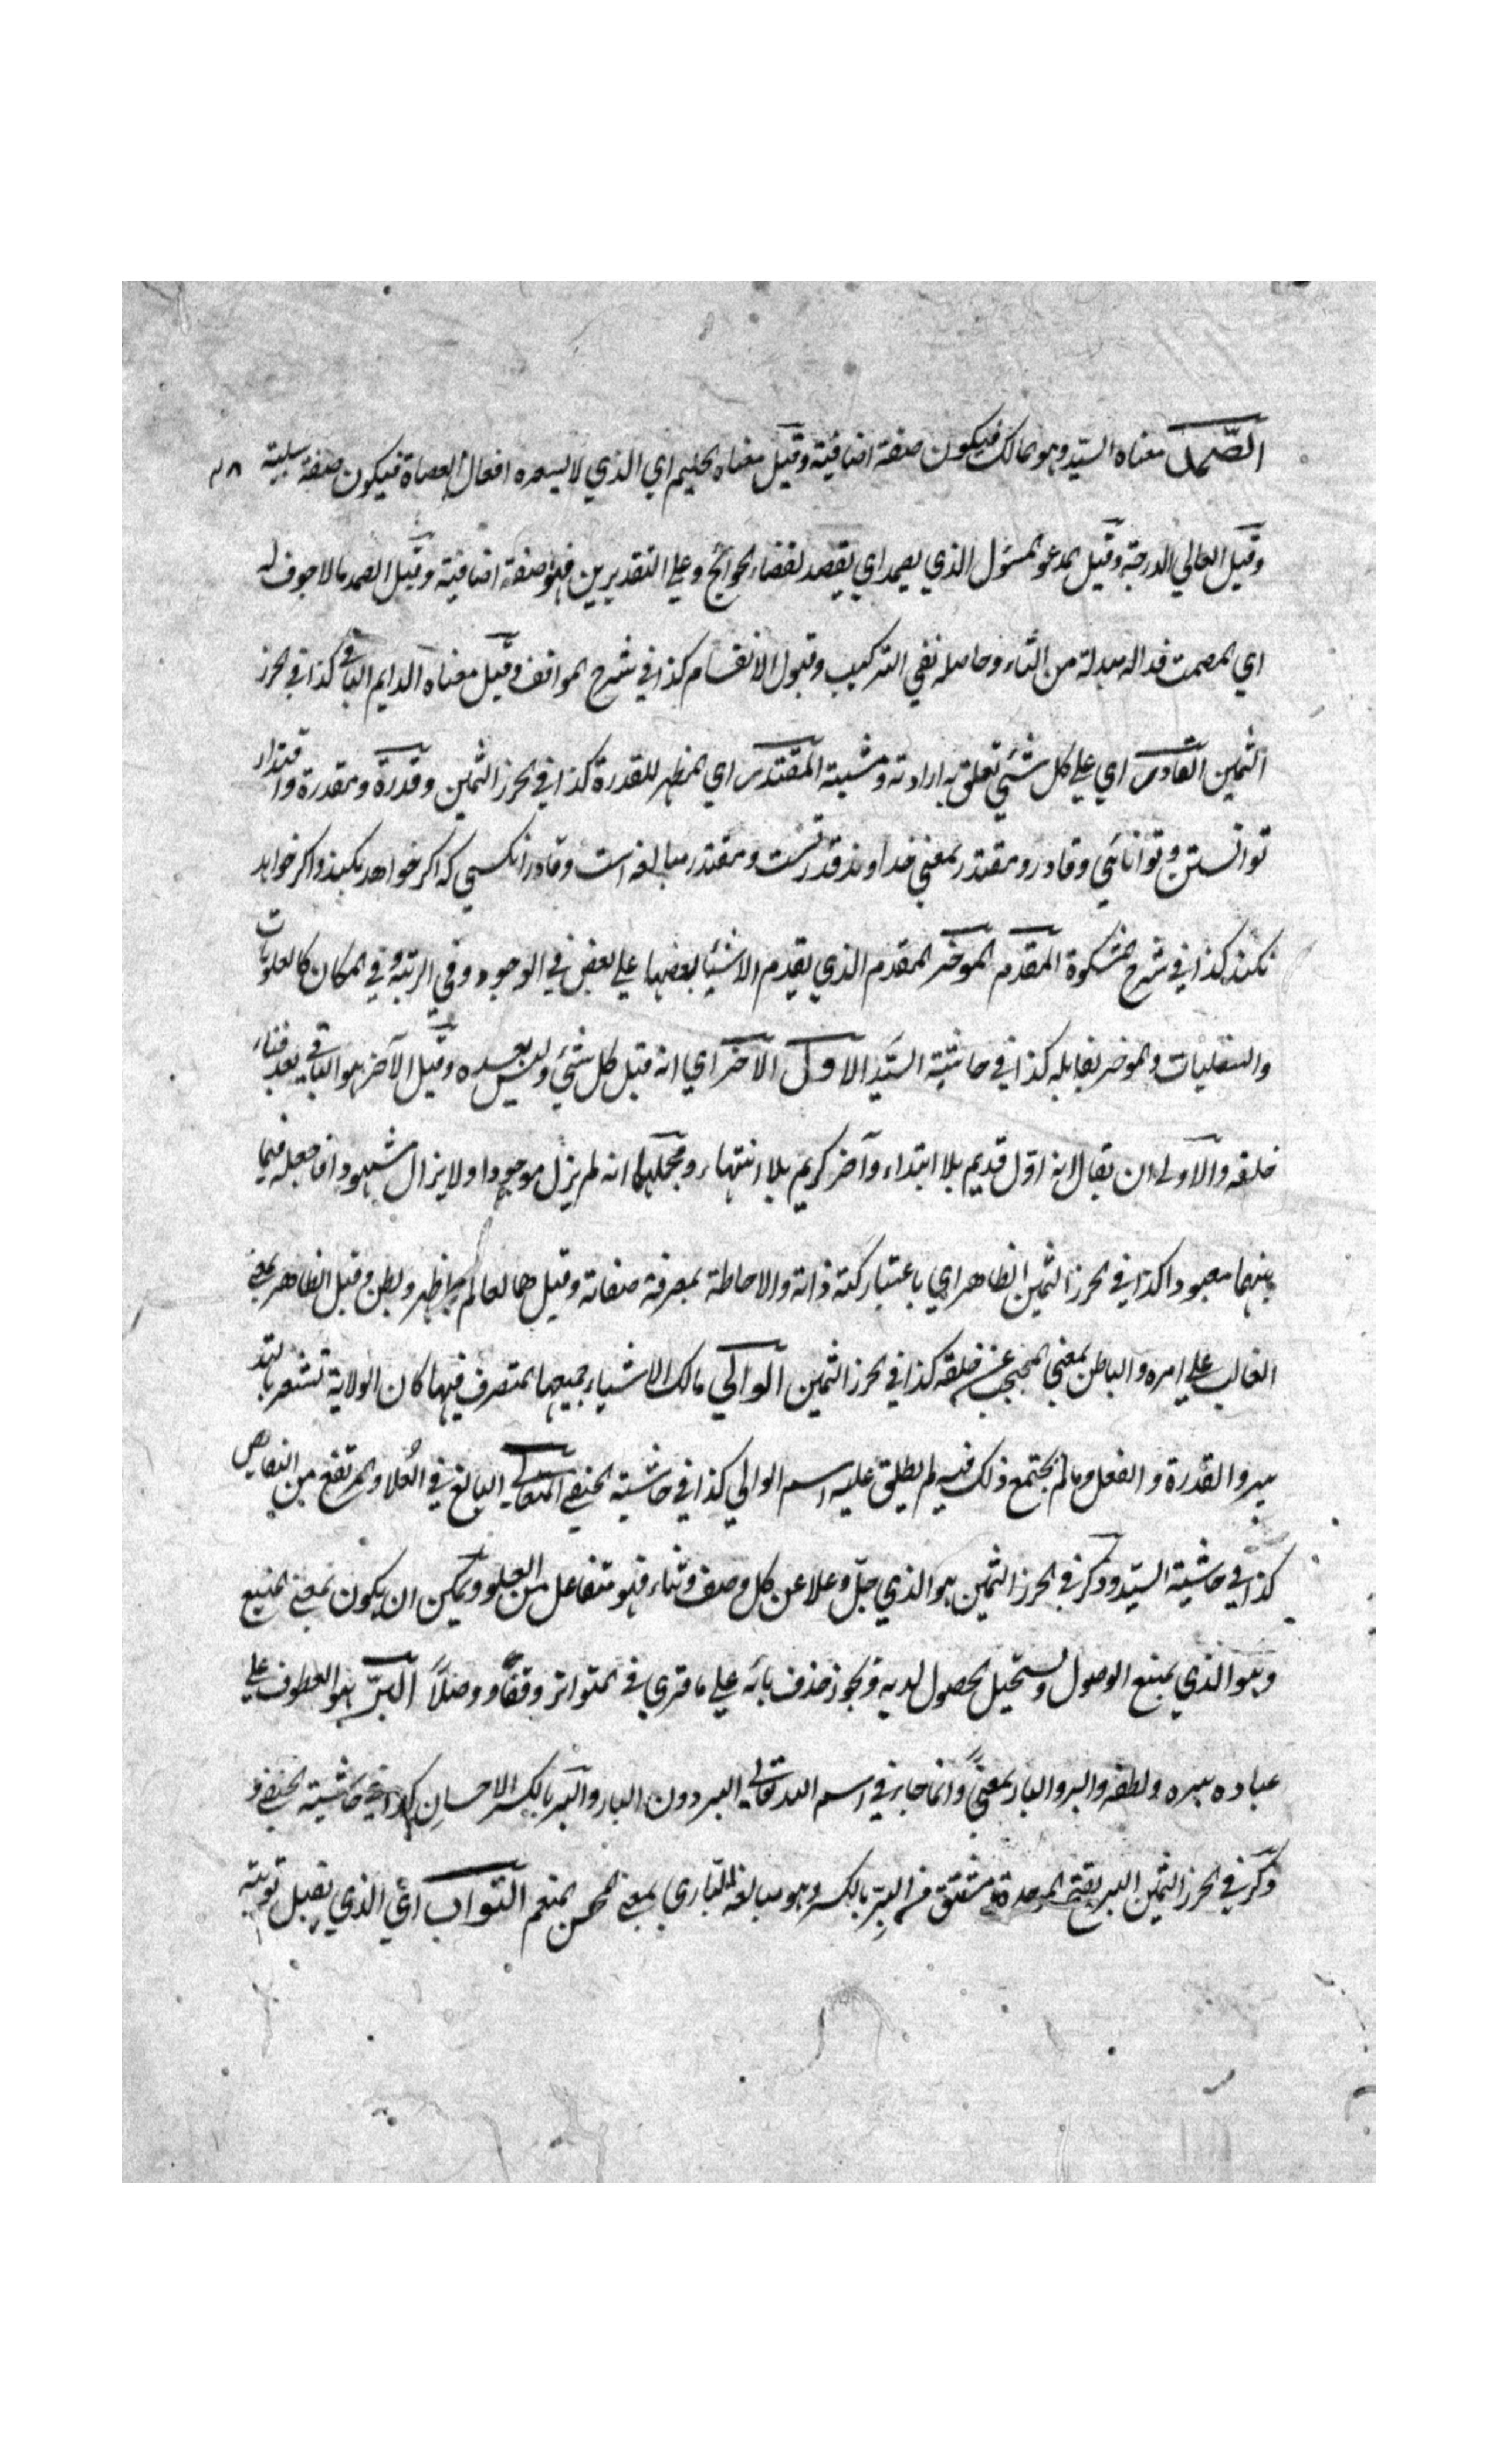 الصّمد معناه السيّد وهو المالك فيكون صفة اضافية وقيل معناه الحليم اي الذي لا يسعره افعال العصاة فيكون صفة سلبية ٤٨
وقيل العالي الدرجة وقيل المدعو المسئول الذي يصمد اي يقصد لقضاء الحوائج وعلي التقديرين فهو صفة اضافية وقيل الصمد مالا جوف له
اي المصمت فداله مبدلة من التاء وحاصله نفي التركيب وقبول الانقسام كذا في شرح المواقف وقيل معناه الدايم الباقي كذا في الحرز
الثمين القادر اي علي كل شئي تعلق به ارادته ومشيته المقتدر اي المظهر للقدرة كذا في الحرز الثمين وقدرة ومقدرة واقتدار
توانستن وتوانائي وقادر ومقتدر بمعني خداوند قدرتست ومقتدر مبالغه است وقادر انكسي كه اكر خواهد بكند واكر خواهد
نكند كذا في شرح المشكوة المقدم الموخر المقدم الذي يقدم الاشيا بعضها علي بعض في الوجود وفي الرتبة وفي المكان كالعلويات
والسفليات والموخر يقابله كذا في حاشية السيّد الاول الآخر اي انه قبل كل شئي وليس بعده وقيل الآخر هو الباقي بعد فناء
خلقه والاولي ان يقال انه اوّل قديم بلا ابتداء وآخر كريم بلا انتهاء ومجملها انه لم يزل موجودا ولا يزال مشهودا فاجعله فيما
بينهما معبودا كذا في الحرز الثمين الظاهر اي باعتبار كنه ذاته والاحاطة بمعرفة صفاته وقيل هما لعالم بما ظهر وبطن وقيل الظاهر بمعني
الغالب علي امره والباطن بمعني المحتجب عن خلقه كذا في الحرز الثمين الوالي مالك الاشياء جميعها المتصرف فيها كان الولاية تشعر بالتد
بير والقدرة والفعل ومالم يجتمع ذلك فيه لم يطلق عليه اسم الوالي كذا في حاشية الحنفي المتعالي البالغ في العُلا والمرتفع من النقايص
كذا في حاشية السيّد وذكر في الحرز الثمين هو الذي جلّ وعلا عن كل وصف وثناء فهو متفاعل من العلو ويمكن ان يكون بمعني المنيع
وهو الذي يمنع الوصول ويستحيل الحصول لديه ويجوز حذف يائه علي ما قري في المتواتر وقفًا ووصلًا البرّ هو العطوف علي
عباده ببره ولطفه والبر والبار بمعنيً وانما جاء في اسم الله تعالي البر دون البار والبر بالكسر الاحسان كذا في حاشية الحنفي و
ذكر في الحرز الثمين البر بفتح الموحدة مشتق من البِرّ بالكسر وهو مبالغة البار اي بمعني المحسن المنعم التواب اي الذي يقبل توبته